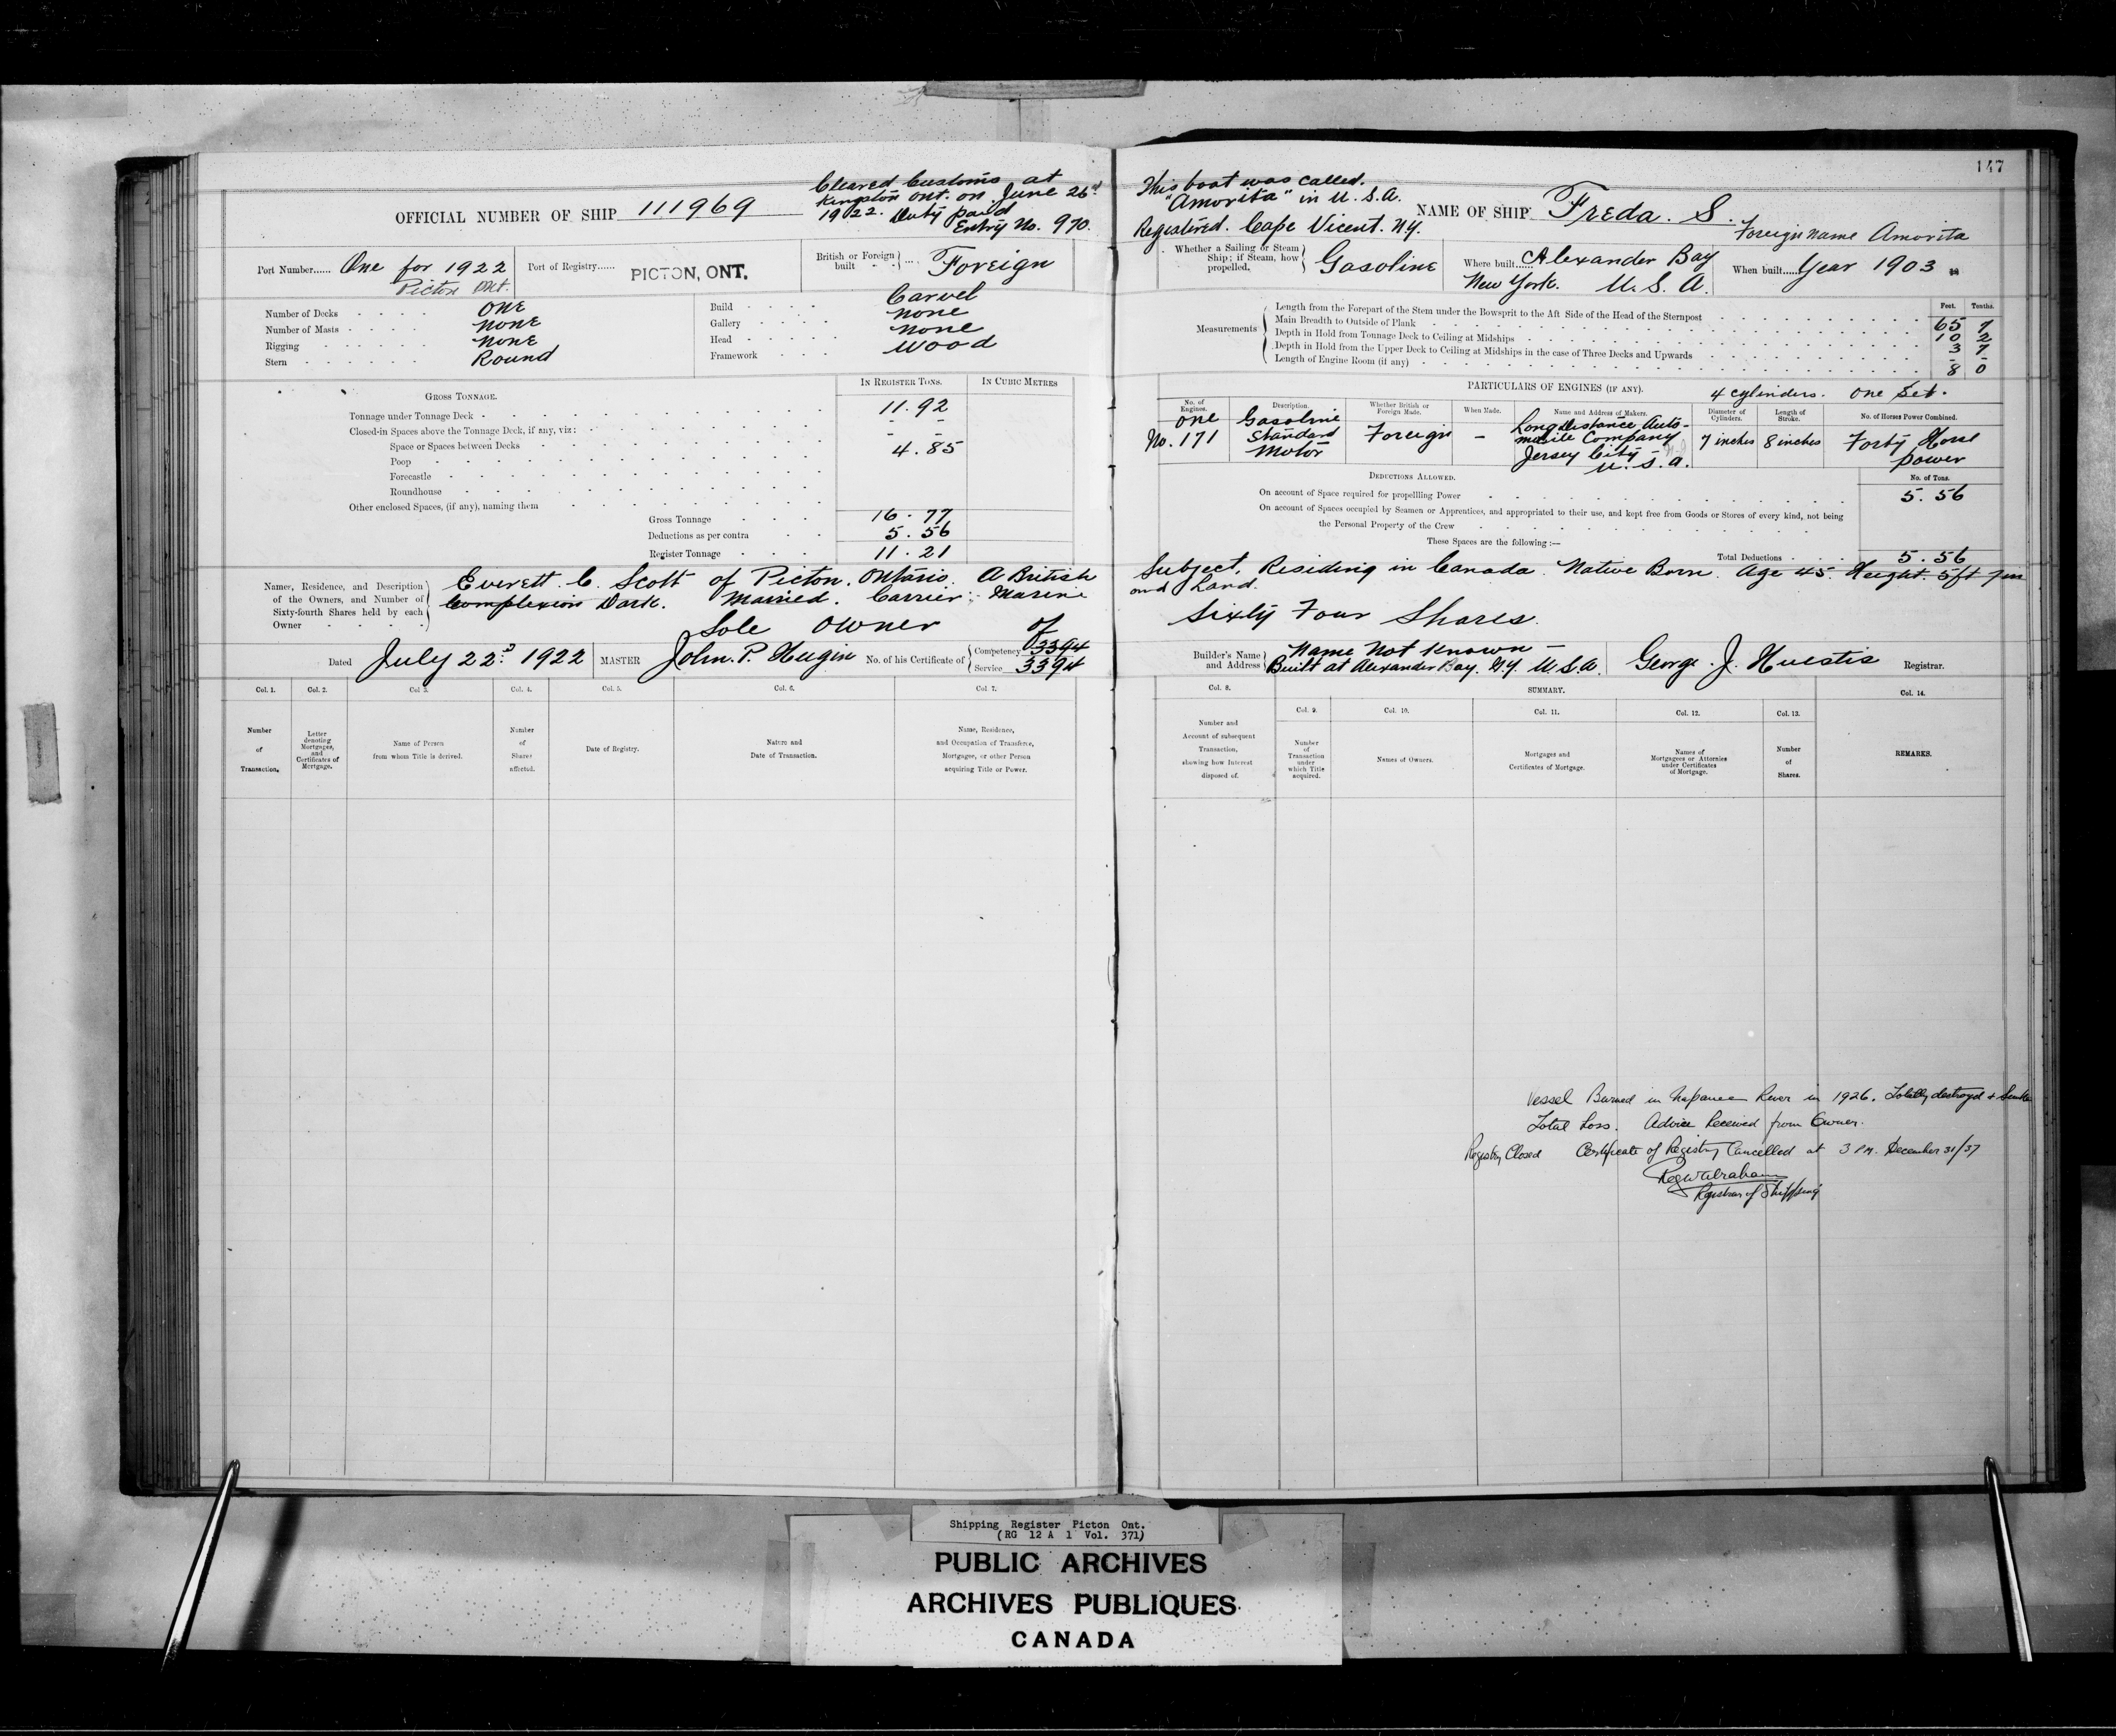 Cleared Customs at
Kingston Ont. on June 26th
1922. Duty paid
Entry No. 970.
OFFICIAL NUMBER OF SHIP 111969
Port Number...... One for 1922
Picton Ont.
Port of Registry...... PICTON, ONT.
British or Foreign built ... Foreign
Number of Decks One
Number of Masts none
Rigging none
Stern Round
Build Carvel
Gallery none
Head none
Framework Wood
GROSS TONNAGE.
IN REGISTER TONS.
IN CUBIC METRES
Tonnage under Tonnage Deck 11.92
Closed-in Spaces above the Tonnage Deck, if any, viz: - -
Space or Spaces between Decks 4.85
Poop
Forecastle
Roundhouse
Other enclosed Spaces, (if any), naming them
Gross Tonnage 16.77
Deductions as per contra 5.56
Register Tonnage 11.21
Names, Residence, and Description
of the Owners, and Number of
Sixty-fourth Shares held by each
Owner
Everett C. Scott of Picton. Ontario. A British
Complexion Dark. Married. Carrier; Marine
Sole Owner of
Dated July 22d 1922
MASTER John. P. Hugin
No. of his Certificate of
Competency 3394
Service 3394
Col. 1.
Col. 2.
Col. 3.
Col. 4.
Col. 5.
Col. 6.
Col. 7.
Number
of
Transaction.
Letter
denoting
Mortgages,
and
Certificates of
Mortgage.
Name of Person
from whom Title is derived.
Number
of
Shares
affected.
Date of Registry.
Nature and
Date of Transaction.
Name, Residence,
and Occupation of Transferee,
Mortgagee, or other Person
acquiring Title or Power.
147
This boat was called.
"Amorita" in U.S.A.
Registered. Cape Vicent. N.Y.
NAME OF SHIP Freda. S.
Foreign name Amorita
Whether a Sailing or Steam
Ship; if Steam, how
propelled,
Gasoline
Where built..... Alexander Bay
New York. U.S.A.
When built..... Year 1903
Measurements
Feet. Tenths.
Length from the Forepart of the Stem under the Bowsprit to the Aft Side of the Head of the Sternpost 65 7
Main Breadth to Outside of Plank 10 2
Depth in Hold from Tonnage Deck to Ceiling at Midships 3 7
Depth in Hold from the Upper Deck to Ceiling at Midships in the case of Three Decks and Upwards - -
Length of Engine Room (if any) 8 0
PARTICULARS OF ENGINES (IF ANY). 4 cylinders. One Set.
No. of
Engines.
Description.
Whether British or
Foreign Made.
When Made.
Name and Address of Makers.
Diameter of
Cylinders.
Length of
Stroke.
No. of Horses Power Combined.
One
No. 171
Gasoline
Standard
Motor
Foreign
-
Long distance Auto-
mobile Company
Jersey City
U.S.A.
7 inches
8 inches
Forty Horse
power
DEDUCTIONS ALLOWED.
No. of Tons.
On account of Space required for propellling Power 5.56
On account of Spaces occupied by Seamen or Apprentices, and appropriated to their use, and kept free from Goods or Stores of every kind, not being
the Personal Property of the Crew
These Spaces are the following :—
Total Deductions 5.56
Subject, Residing in Canada. Native Born. Age 45. Height. 5ft 7in
and Land.
Sixty Four Shares.
Builder's Name
and Address
Name Not Known -
Built at Alexander Bay. N.Y. U.S.A.
George. J. Huestis Registrar.
Col. 8.
SUMMARY.
Col. 14.
Col. 9.
Col. 10.
Col. 11.
Col. 12.
Col. 13.
Number and
Account of subsequent
Transaction,
showing how Interest
disposed of.
Number
of
Transaction
under
which Title
acquired.
Names of Owners.
Mortgages and
Certificates of Mortgage.
Names of
Mortgagees or Attornies
under Certificates
of Mortgage.
Number
of
Shares.
REMARKS.
Vessel Burned in Napanee River in 1926. Totally destroyed & Sunk
Total Loss. Advice Received from Owner.
Registry Closed Certificate of Registry Cancelled at 3 P.M. December 31/37
Registrar of Shipping
Shipping Register Picton Ont.
(RG 12 A 1 Vol. 371)
PUBLIC ARCHIVES
ARCHIVES PUBLIQUES
CANADA